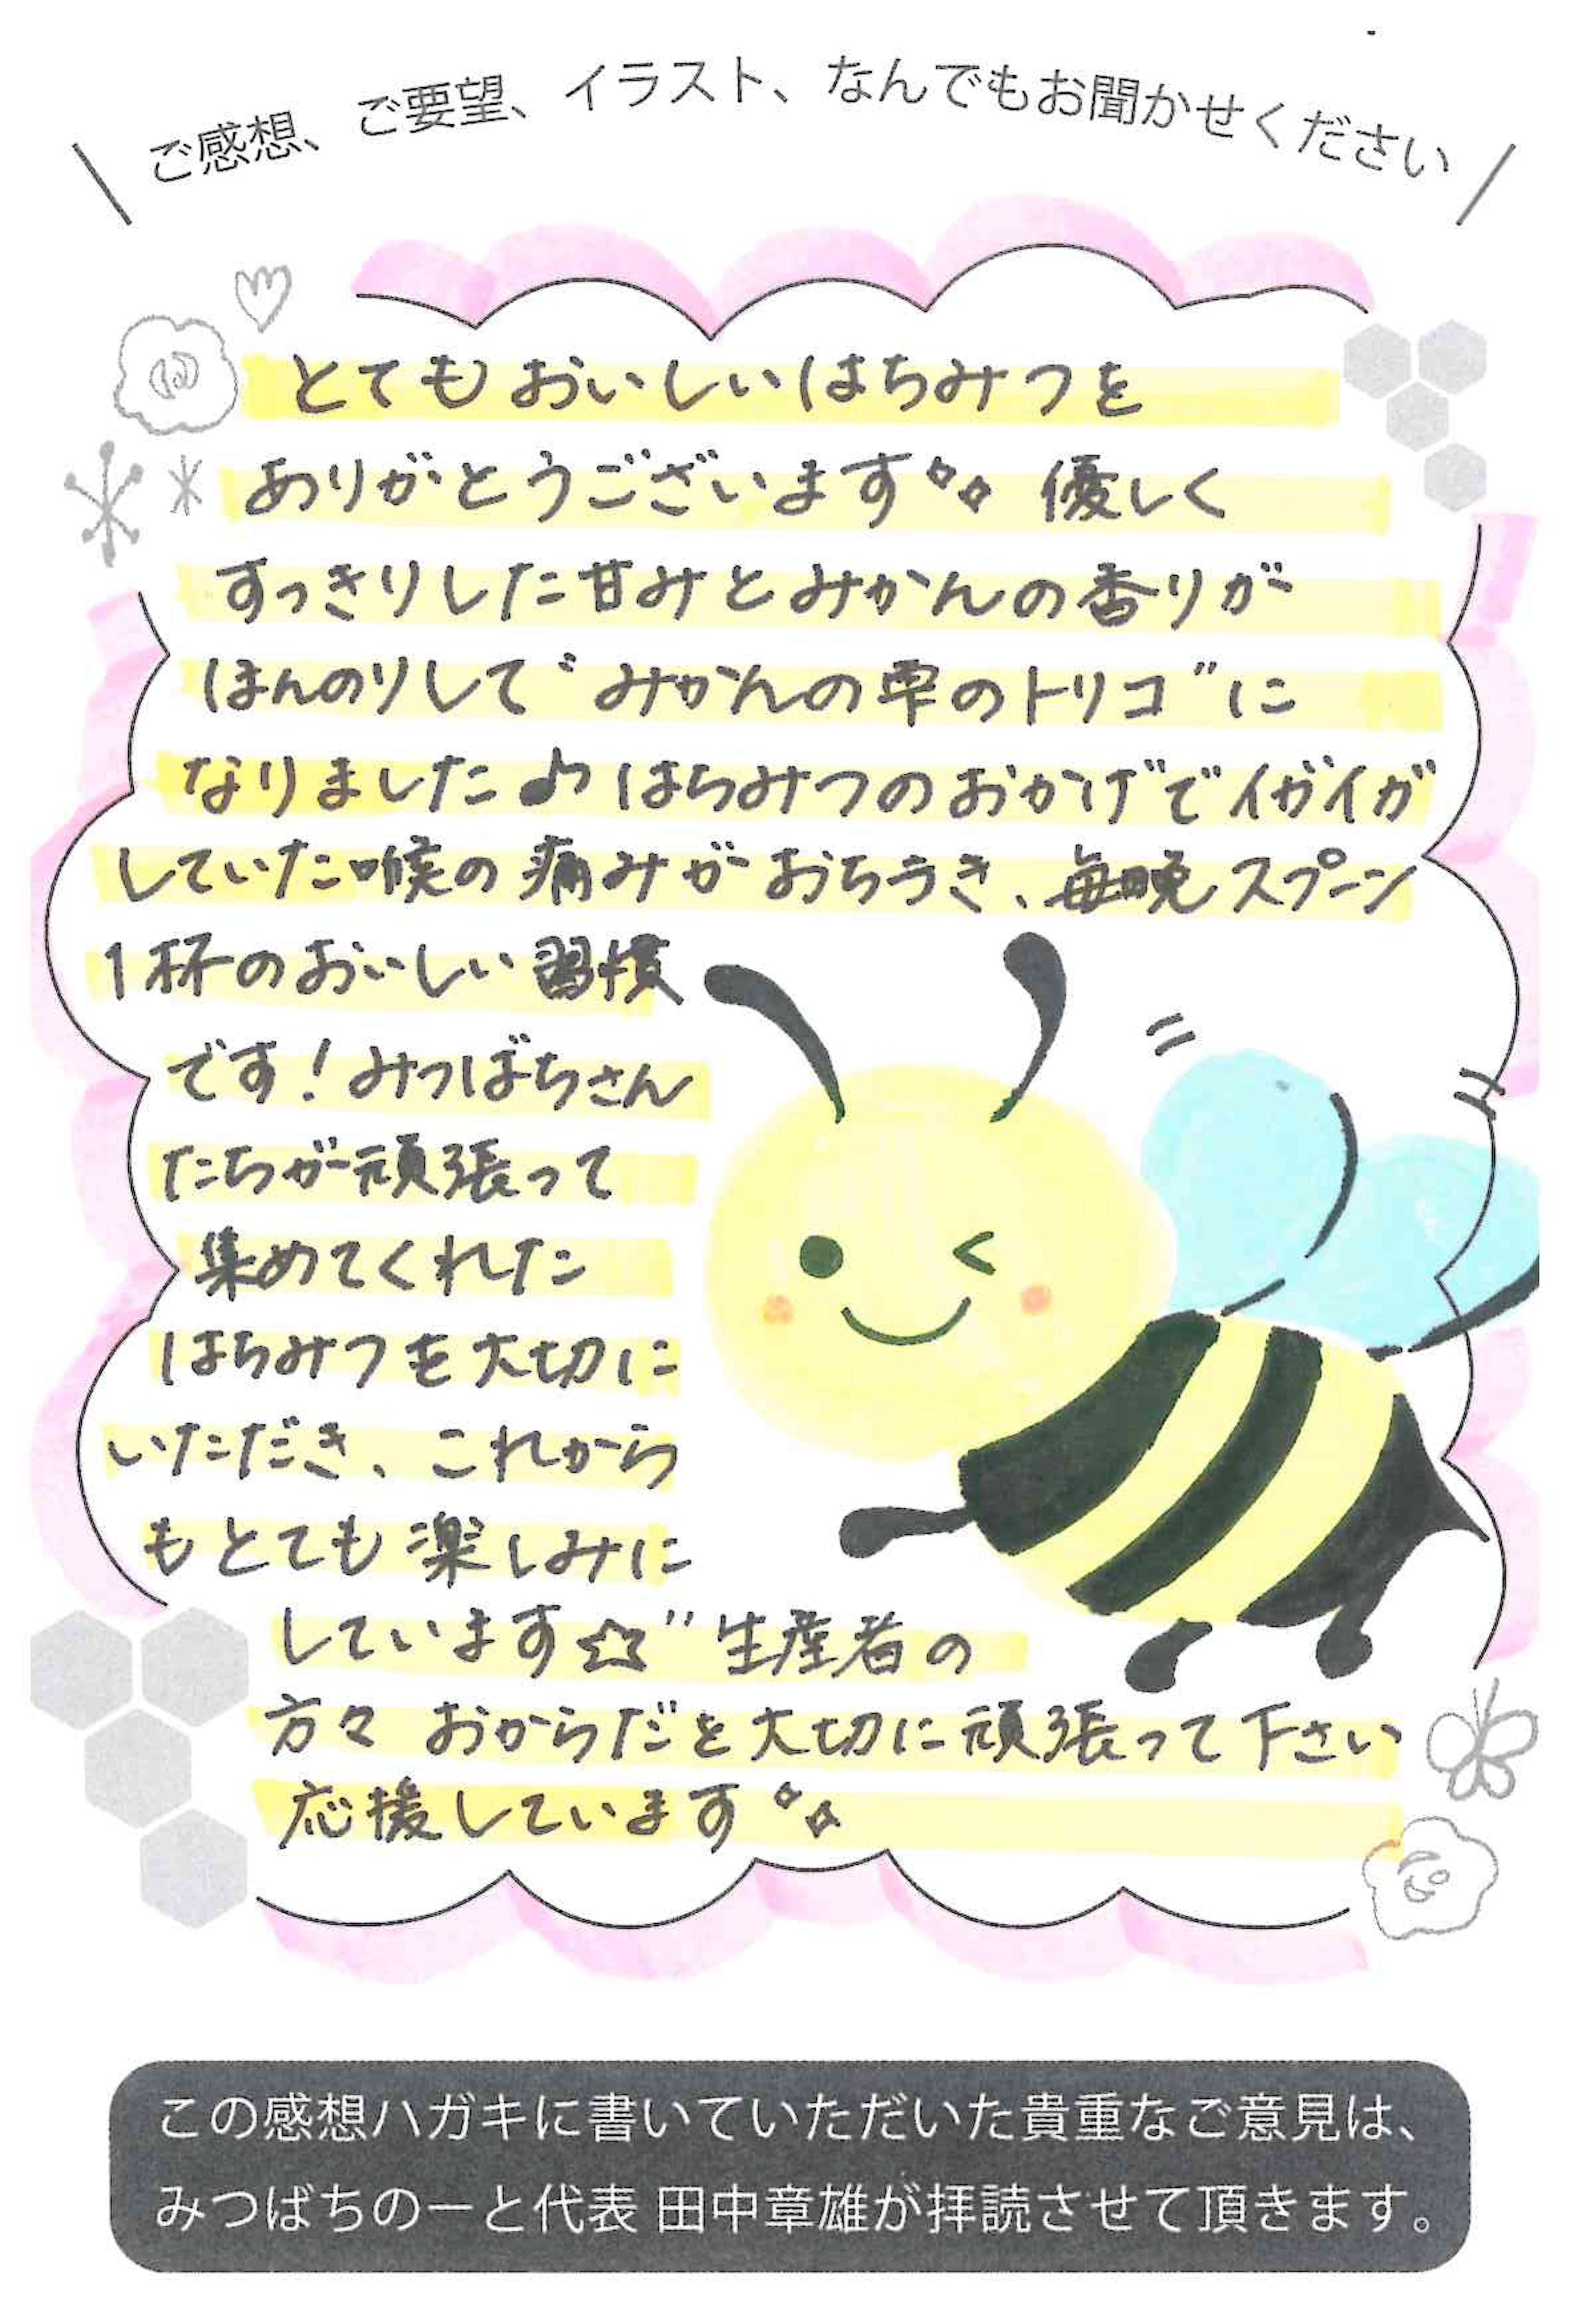 ご感想、ご要望、イラスト、なんでもお聞かせください
とてもおいしいはちみつを
ありがとうございます 優しく
すっきりした甘みとみかんの香りが
ほんのりして"みかんの雫のトリコ"に
なりました♪はちみつのおかげでイガイガ
していた喉の痛みがおちつき、毎晩スプーン
1杯のおいしい習慣
です!みつばちさん
たちが頑張って
集めてくれた
はちみつを大切に
いただき、これから
もとても楽しみに
しています☆" 生産者の
方々 おからだを大切に頑張って下さい
応援しています
この感想ハガキに書いていただいた貴重なご意見は、
みつばちのーと代表 田中章雄が拝読させて頂きます。